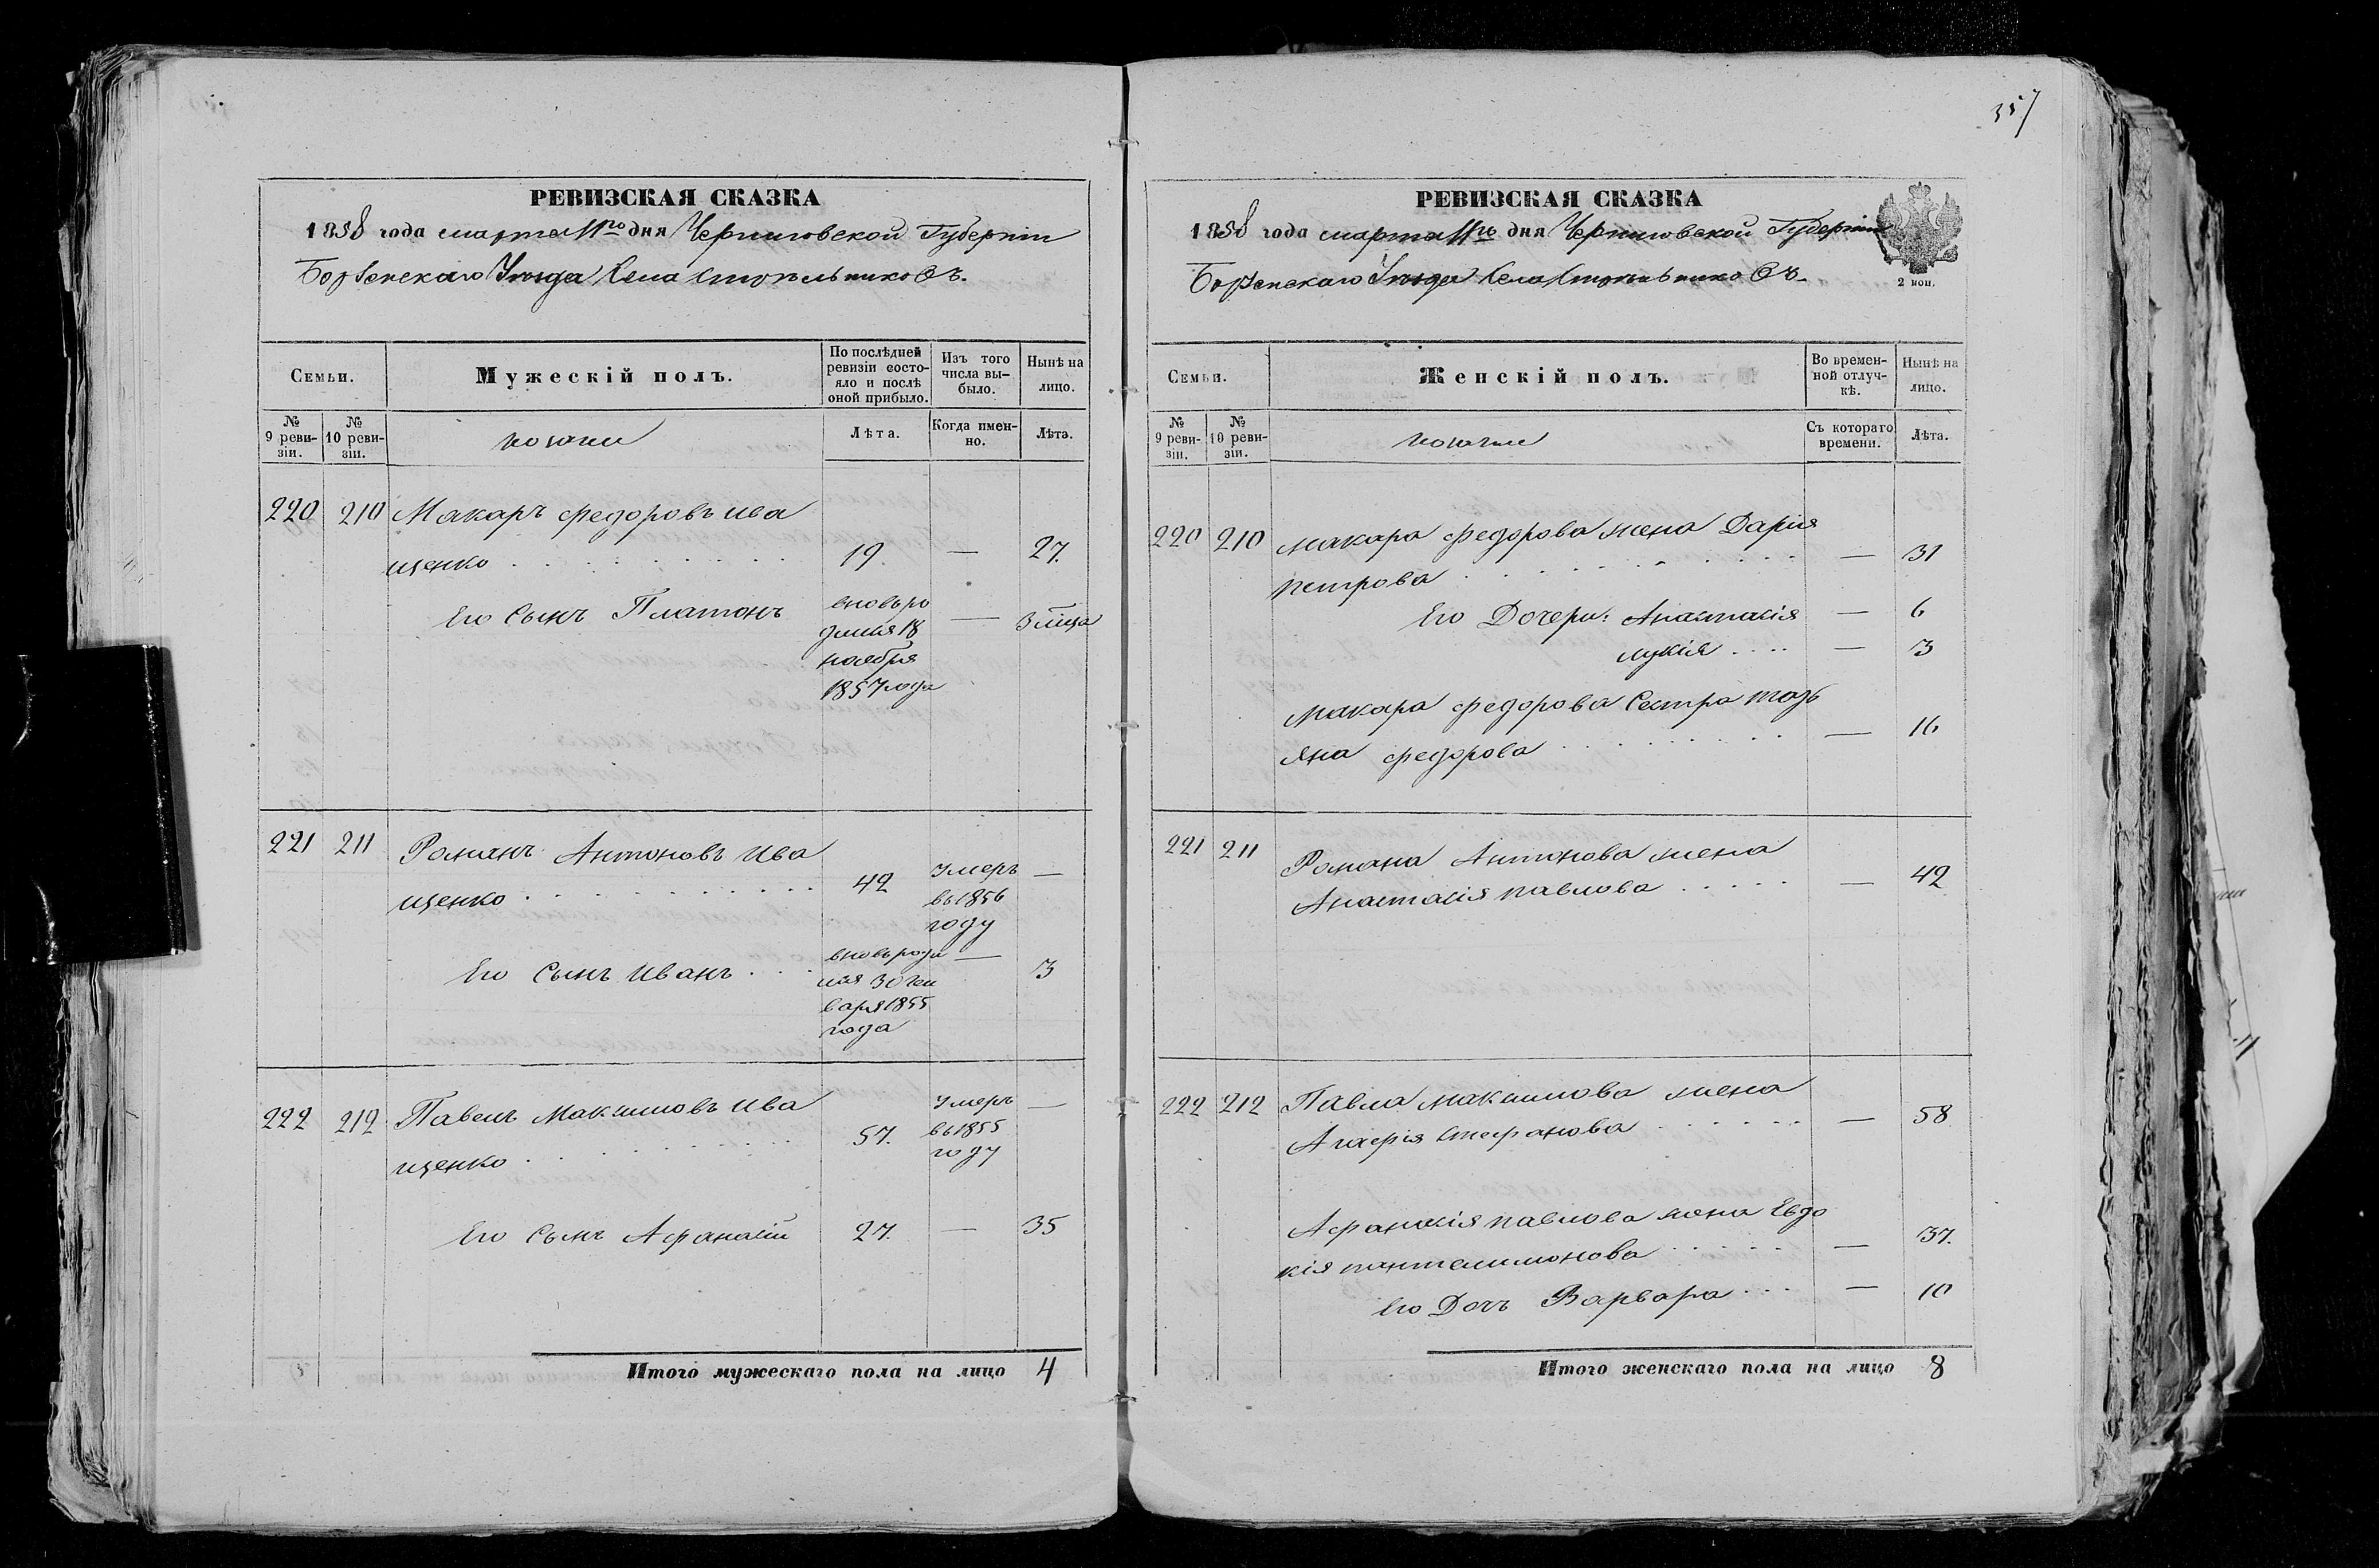 357
РЕВИЗСКАЯ СКАЗКА
1858 года марта 11го дня Черниговской Губерніи
Борзенскаго Уѣзда Села Стольниковъ.
Семьи.
Мужескій полъ.
По послѣдней ревизіи состояло и послѣ оной прибыло.
Изъ того числа выбыло.
Нынѣ на лицо.
№ 9 ревизіи.
№ 10 ревизіи.
Лѣта.
Когда именно.
Лѣта.
220 210 Макаръ Федоровъ Ива
щенко 19 — 27.
Его Сынъ Платонъ вновь ро — 3 мца
дился 18
ноября
1857 года
221 211 Романъ Антоновъ Ива
щенко 42 Умеръ —
въ 1856
году
Его Сынъ Иванъ вновь роди — 3
лся 30 Ген
варя 1855
года
222 212 Павелъ Максимовъ Ива
щенко 57. Умеръ —
въ 1855
году
Его Сынъ Афанасій 27. — 35
Итого мужескаго пола на лицо 4
РЕВИЗСКАЯ СКАЗКА
1858 года марта 11го дня Черниговской Губерніи
Борзенскаго Уѣзда Села Стольниковъ.
2 коп.
Семьи.
Женскій полъ.
Во временной отлучкѣ.
Нынѣ на лицо.
№ 9 ревизіи.
№ 10 ревизіи.
Съ котораго времени.
Лѣта.
220 210 Макара Федорова жена Дарія
Петрова — 31
Его Дочери: Анастасія — 6
Лукія — 3
Макара Федорова Сестра Тать
яна Федорова — 16
221 211 Романа Антонова жена
Анастасія Павлова — 42
222 212 Павла Максимова жена
Агафія Стефанова — 58
Афанасія Павлова жена Евдо
кія Пантелимонова — 37.
Его Дочь Варвара — 10
Итого женскаго пола на лицо 8